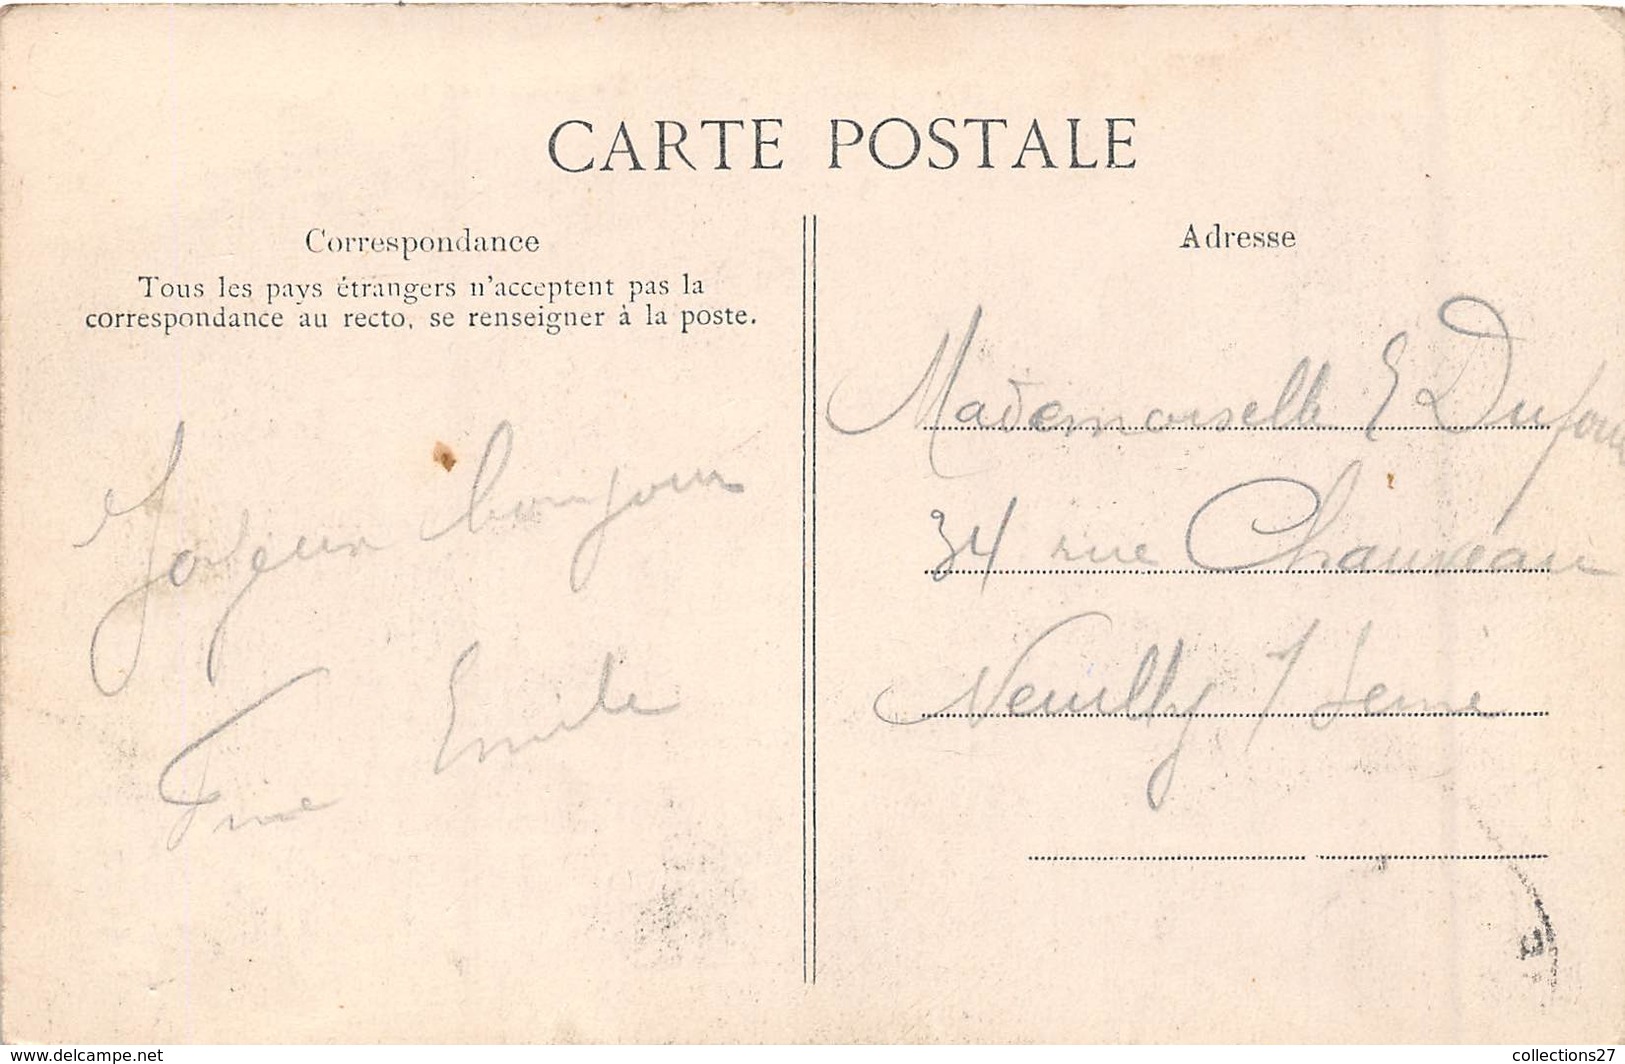 CARTE POSTALE
Correspondance
Tous les pays étrangers n'acceptent pas la
correspondance au recto, se renseigner à la poste.
Joyeux bonjour
Emile
Adresse
Mademoiselle E Dufour
34 rue Chauveau
Neuilly / Seine
www.delcampe.net
collections27